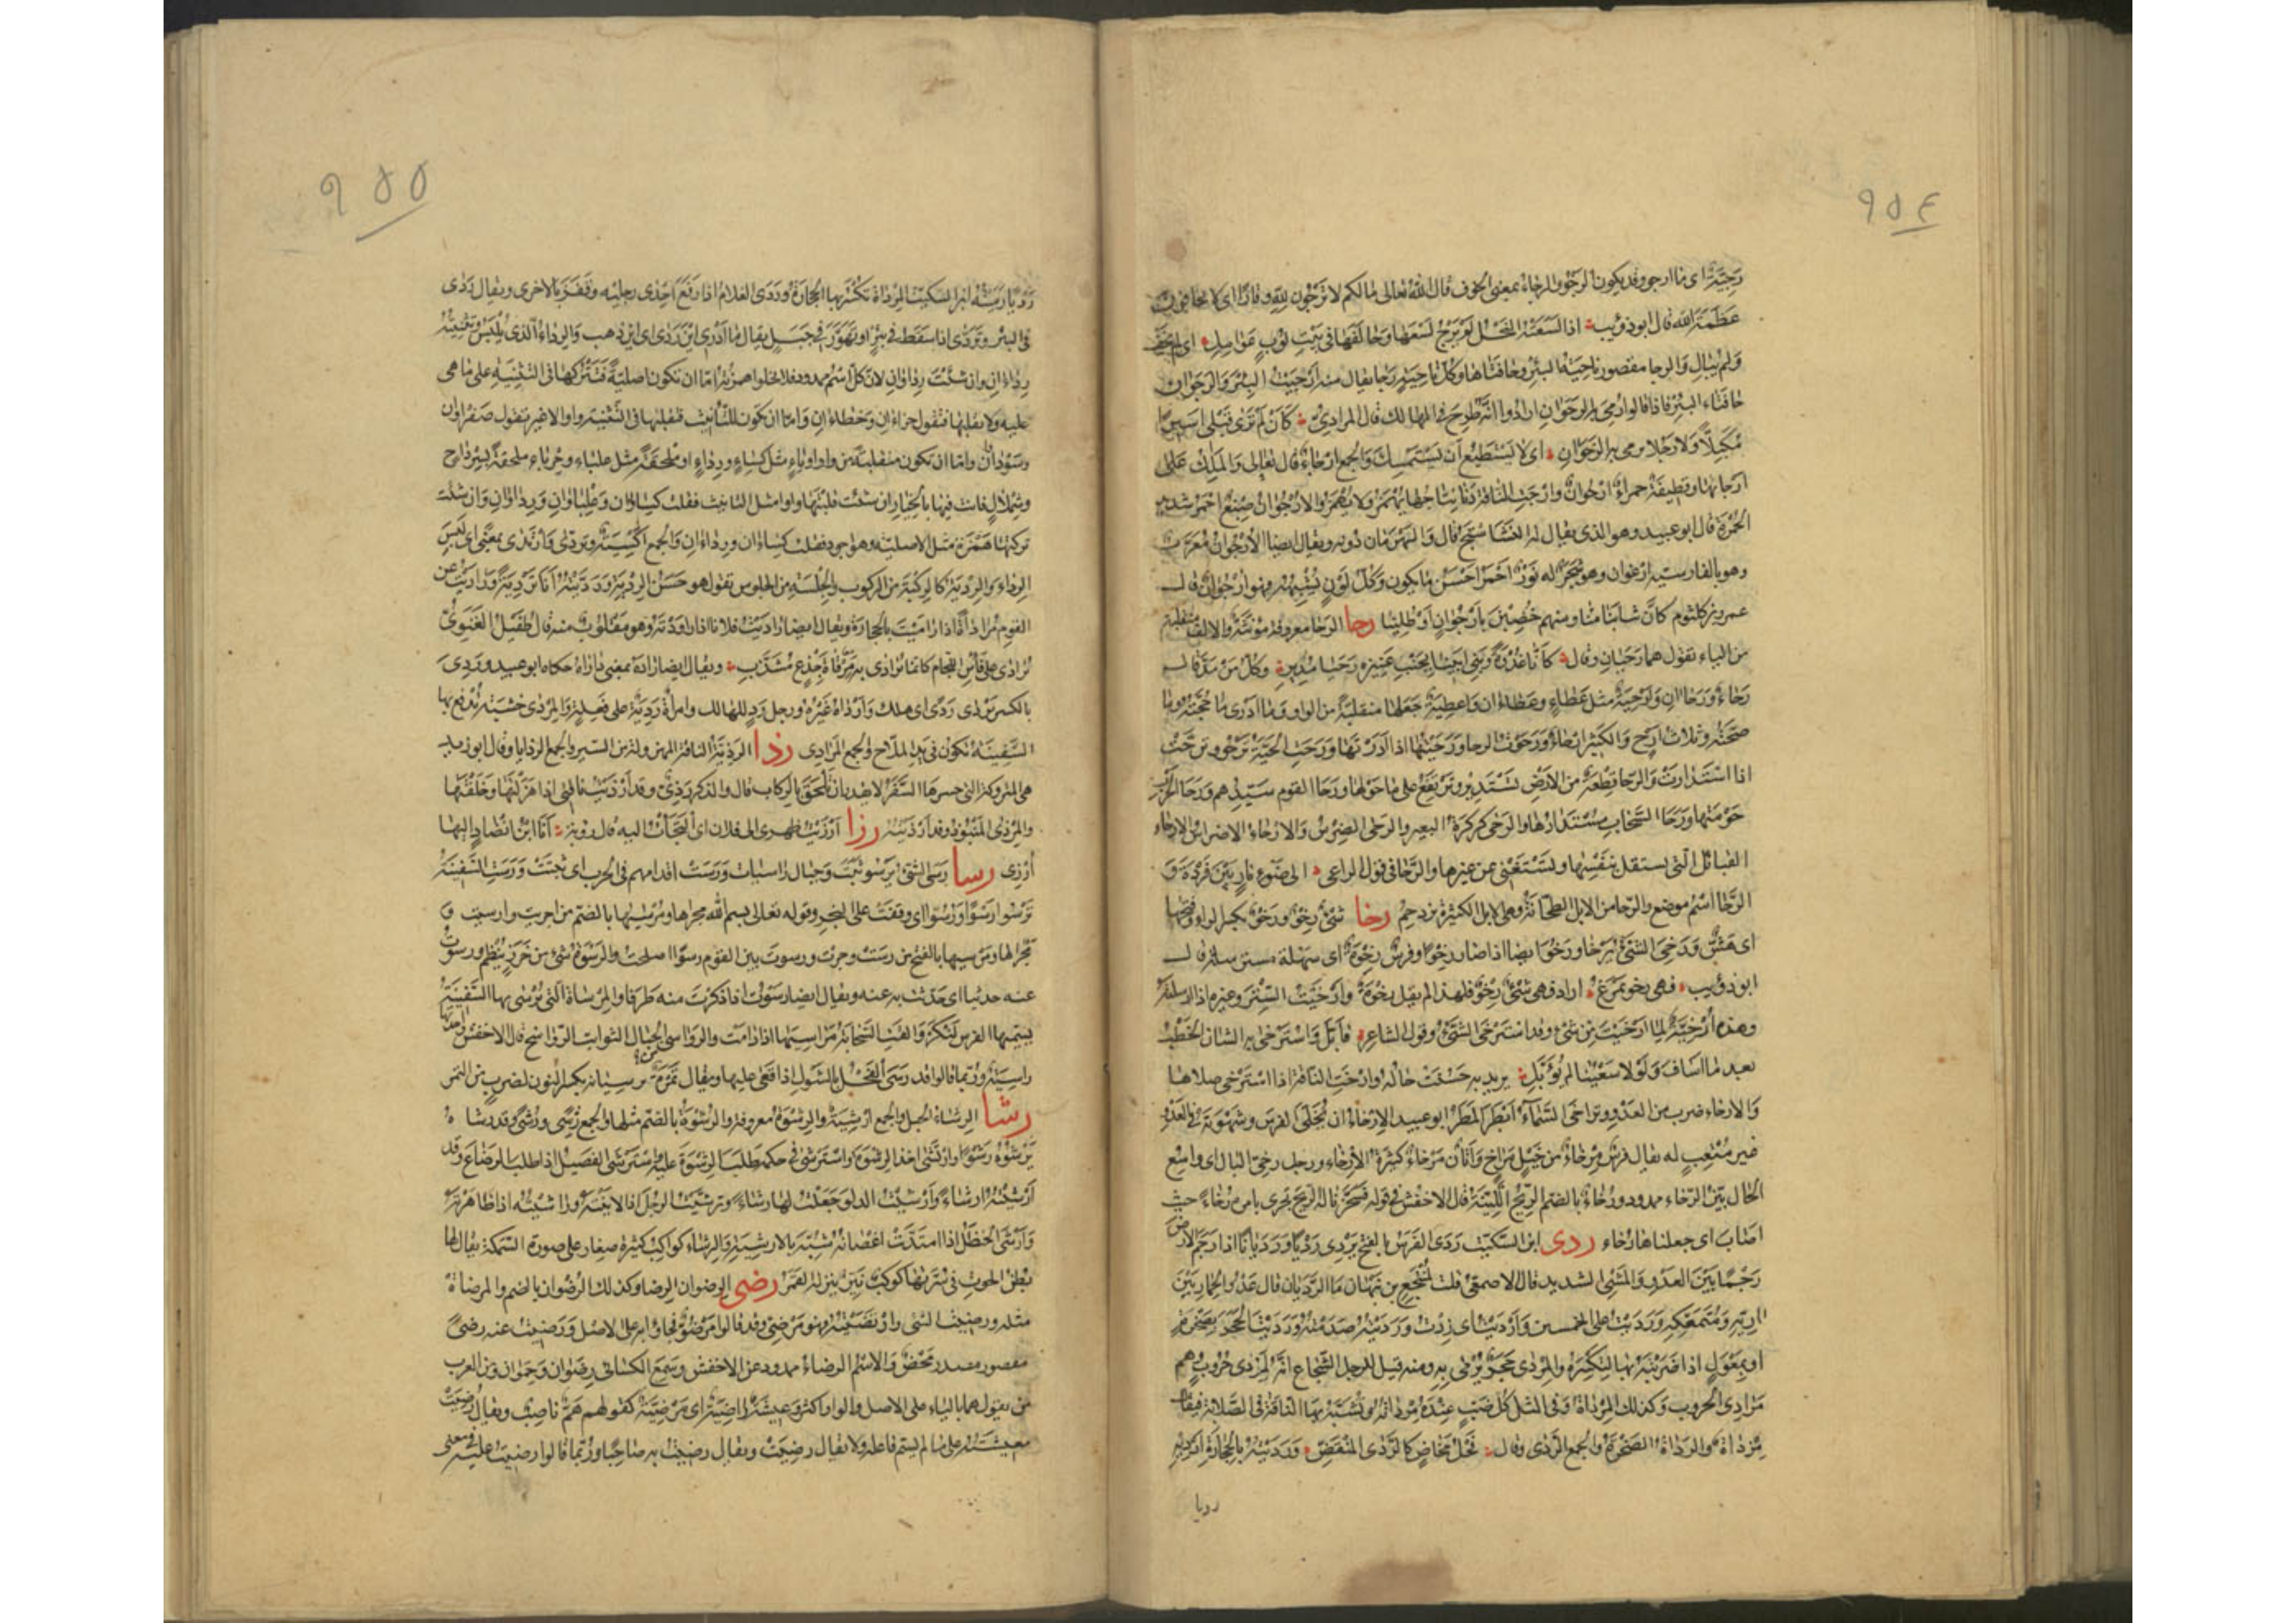 ٩٥٤
رَجِيَّةٌ اى ما ارجو وقد يكون الرجو والرجاء بمعنى الخوف قال الله تعالى ما لكم لا ترجون لله وقارا اى لا تخافون
عظمة الله قال ابو ذؤيب اذا لسعته النحل لم يرج لسعها وخالفها فى بيت نوب عوامل اى لم يخف
ولم يبال والرجا مقصور ناحية البئر وحافتاها وكل ناحية رجا يقال منه ارجيت البئر والرجوان
حافتا البئر فاذا قالوا رمى به الرجوان ارادوا انه طرح فى المهالك قال المرادى كأن لم ترى قبلى اسيرا
مكبلا ولا رجلا يرمى به الرجوان اى لا يستطيع ان يستمسك والجمع ارجاء قال تعالى والملك على
ارجائها وقطيفة حمراء ارجوان وارجت الناقة دنا نتاجها يهمز ولا يهمز والارجوان صبغ احمر شديد
الحمرة قال ابو عبيد وهو الذى يقال له النشاستج قال والبهرمان دونه ويقال ايضا الارجوان معرب
وهو بالفارسية ارغوان وهو شجر له نور احمر احسن ما يكون وكل لون يشبهه فهو ارجوان قال
عمرو بن كلثوم كأن ثيابنا منا ومنهم خضبن بارجوان او طلينا رحا الرحا معروفة مؤنثة والالف منقلبة
من الياء تقول هما رحيان وقال كأنا غدوة وبنى ابينا بجنب عنيزة رحيا مدير وكل من مد قال
رحاء ورحاان وارحية مثل عطاء وعطاءان واعطية جعلها منقلبة من الواو وما ادرى ما حجته وما
صحته وثلاث ارح والكثير ارحاء ورحوت الرحا ورحيتها اذا ادرتها ورحت الحية ترحو وترحت
اذا استدارت والرحا قطعة من الارض تستدير وترتفع على ما حولها ورحا القوم سيدهم ورحا الحرب
حومتها ورحا السحاب مستدارها والرحى كركرة البعير والرحى الضرس والارحاء الاضراس والارحاء
القبائل التى تستقل بنفسها وتستغنى عن غيرها والرحا فى قول الراعى الى ضوء نار بين فردة و
الرحا اسم موضع والرحا من الابل الطحانة وهى الابل الكثيرة تزدحم رخا شئ رخو ورخو بكسر الراء وفتحها
اى هش ورخى الشئ يرخا ورخو ايضا اذا صار رخوا وفرس رخوة اى سهلة مسترسلة قال
ابو ذؤيب فهى رخو تمزع اراد فهى شئ رخو فلهذا لم يقل رخوة وارخيت الستر وغيره اذا ارسلته
وهذه ارخية لما ارخيت من شئ وقد استرخى الشئ وقول الشاعر فأبل واسترخى به الشان الخطب
بعد ما اساف ولولا سعينا لم يؤبل يريد به حسنت حاله وارخت الناقة اذا استرخى صلاها
والارخاء ضرب من العدو وتراخى السماء ابطأ المطر ابو عبيد الارخاء ان تخلى الفرس وشهوته فى العدو
غير متعب له يقال فرس مرخاء من خيل مراخ واتان مرخاء كثيرة الارخاء ورجل رخى البال اى واسع
الحال بين الرخاء ممدود ورخاء بالضم الريح اللينة قال الاخفش فى قوله فسخرنا له الريح تجرى بامره رخاء حيث
اصاب اى جعلناها رخاء ردى ابن السكيت ردى الفرس بالفتح يردى رديا ورديانا اذا رجم الارض
رجما بين العدو والمشى الشديد قال الاصمعى قلت لمنتجع بن نبهان ما الرديان قال عدو الحمار بين
اريه ومتمعكه ورديت على الخمسين وارديت اى زدت ورديته صدمته ورديت الحجر بصخرة
او بمعول اذا ضربته بها لتكسره والمردى حجر يرمى به ومنه قيل للرجل الشجاع انه لمردى حروب وهم
مرادى الحروب وكذلك المرداة وفى المثل كل ضب عنده مرداته وتشبه بها الناقة فى الصلابة فيقال
مرداة والرداة الصخرة والجمع الردى وقال فحل مخاض كالردى المنقض ورديته بالحجارة ارديه
رديا
٩٥٥
رديا رميته ابن السكيت المرداة تكسر بها الحجارة وردى الغلام اذا رفع احدى رجليه وقفز بالاخرى ويقال ردى
فى البئر وتردى اذا سقط فى بئر او تهور فى جبل يقال ما ادرى اين ردى اى اين ذهب والرداء الذى يلبس وتثنيته
رداءان وان شئت رداوان لان كل اسم ممدود فلا تخلوا همزته اما ان تكون اصلية فتتركها فى التثنية على ما هى
عليه ولا تقلبها فتقول جزاءان وخطاءان واما ان تكون للتأنيث فتقلبها فى التثنية واوا لا غير تقول صفراوان
وسوداوان واما ان تكون منقلبة من واو او ياء مثل كساء ورداء او ملحقة مثل علباء وحرباء ملحقة بسرداح
وشملال فانت فيها بالخيار ان شئت قلبتها واوا مثل التانيث فقلت كساوان وعلباوان ورداوان وان شئت
تركتها همزة مثل الاصلية وهو اجود فقلت كساءان ورداءان والجمع اكسية وتردى وارتدى بمعنى اى لبس
الرداء والردية كالركبة من الركوب والجلسة من الجلوس تقول هو حسن الردية ورديته انا تردية وراديت عن
القوم مراداة اذا راميت بالحجارة ويقال ايضا راديت فلانا اذا راودته وهو مقلوب منه قال طفيل الغنوى
يرادى على فأس اللجام كانما يرادى به مرقاة جذع مشذب ويقال ايضا راداه بمعنى داراه حكاه ابو عبيد وردى
بالكسر يردى ردى اى هلك وارداه غيره ورجل رد للهالك وامرأة ردية على فعلة والمردى خشبة تدفع بها
السفينة تكون فى يد الملاح والجمع المرادى رذا الرذية الناقة المهزولة من السير والجمع الرذايا وقال ابو زيد
هى المتروكة التى حسرها السفر لا تقدر ان تلحق بالركاب قال والذكر رذى وقد ارذيت ناقتى اذا هزلتها وخلفتها
والمرذى المنبوذ وقد ارذيته رزا ارزيت ظهرى الى فلان اى التجأت اليه قال رؤبة انا ابن انضاد اليها
ارزى رسا رسى الشئ يرسو ثبت وجبال راسيات ورست اقدامهم فى الحرب اى ثبتت ورست السفينة
ترسو رسوا ورسوا اى وقفت على البحر وقوله تعالى بسم الله مجراها ومرسيها بالضم من اجريت وارسيت و
مجراها ومرسيها بالفتح من رست وجرت ورسوت بين القوم رسوا اصلحت والرسوة شئ من خرز ينظم ورسوت
عنه حديثا اى حدثت به عنه ويقال ايضا رسوت اذا ذكرت منه طرفا والمرساة التى ترسى بها السفينة
يسميها الفرس لنكر والقت السحابة مراسيها اذا دامت والرواسى الجبال الثوابت الرواسخ قال الاخفش واحدتها
راسية وربما قالوا قد رسى الفحل بالشول اذا قعى عليها ويقال تمرة نرسيانة بكسر النون لضرب من التمر
رشا الرشاء الحبل والجمع ارشية والرشوة معروفة والرشوة بالضم مثلها والجمع رشى ورشى وقد رشاه
يرشوه رشوا وارتشى اخذ الرشوة واسترشى فى حكمه طلب الرشوة عليه واسترشى الفصيل اذا طلب الرضاع وقد
ارشيته ارشاء وارشيت الدلو جعلت لها رشاء وترشيت الرجل اذا لاينته وراشيته اذا ظاهرته
وارشى الحنظل اذا امتدت اغصانه شبه بالارشية والرشاء كواكب كثيرة صغار على صورة السمكة يقال لها
بطن الحوت فى سرتها كوكب نير ينزله القمر رضى الرضوان الرضا وكذلك الرضوان بالضم والمرضاة
مثله ورضيت الشئ وارتضيته فهو مرضى وقد قالوا مرضو فجاؤا به على الاصل ورضيت عنه رضى
مقصور مصدر محض والاسم الرضاء ممدود عن الاخفش وسمع الكسائى رضوان وحموان ومن العرب
من يقول هما بالياء على الاصل والواو اكثر وعيشة راضية اى مرضية كقولهم هم ناصب ويقال رضيت
معيشته على ما لم يسم فاعله ولا يقال رضيت ويقال رضيت به صاحبا وربما قالوا رضيت عليه فى معنى